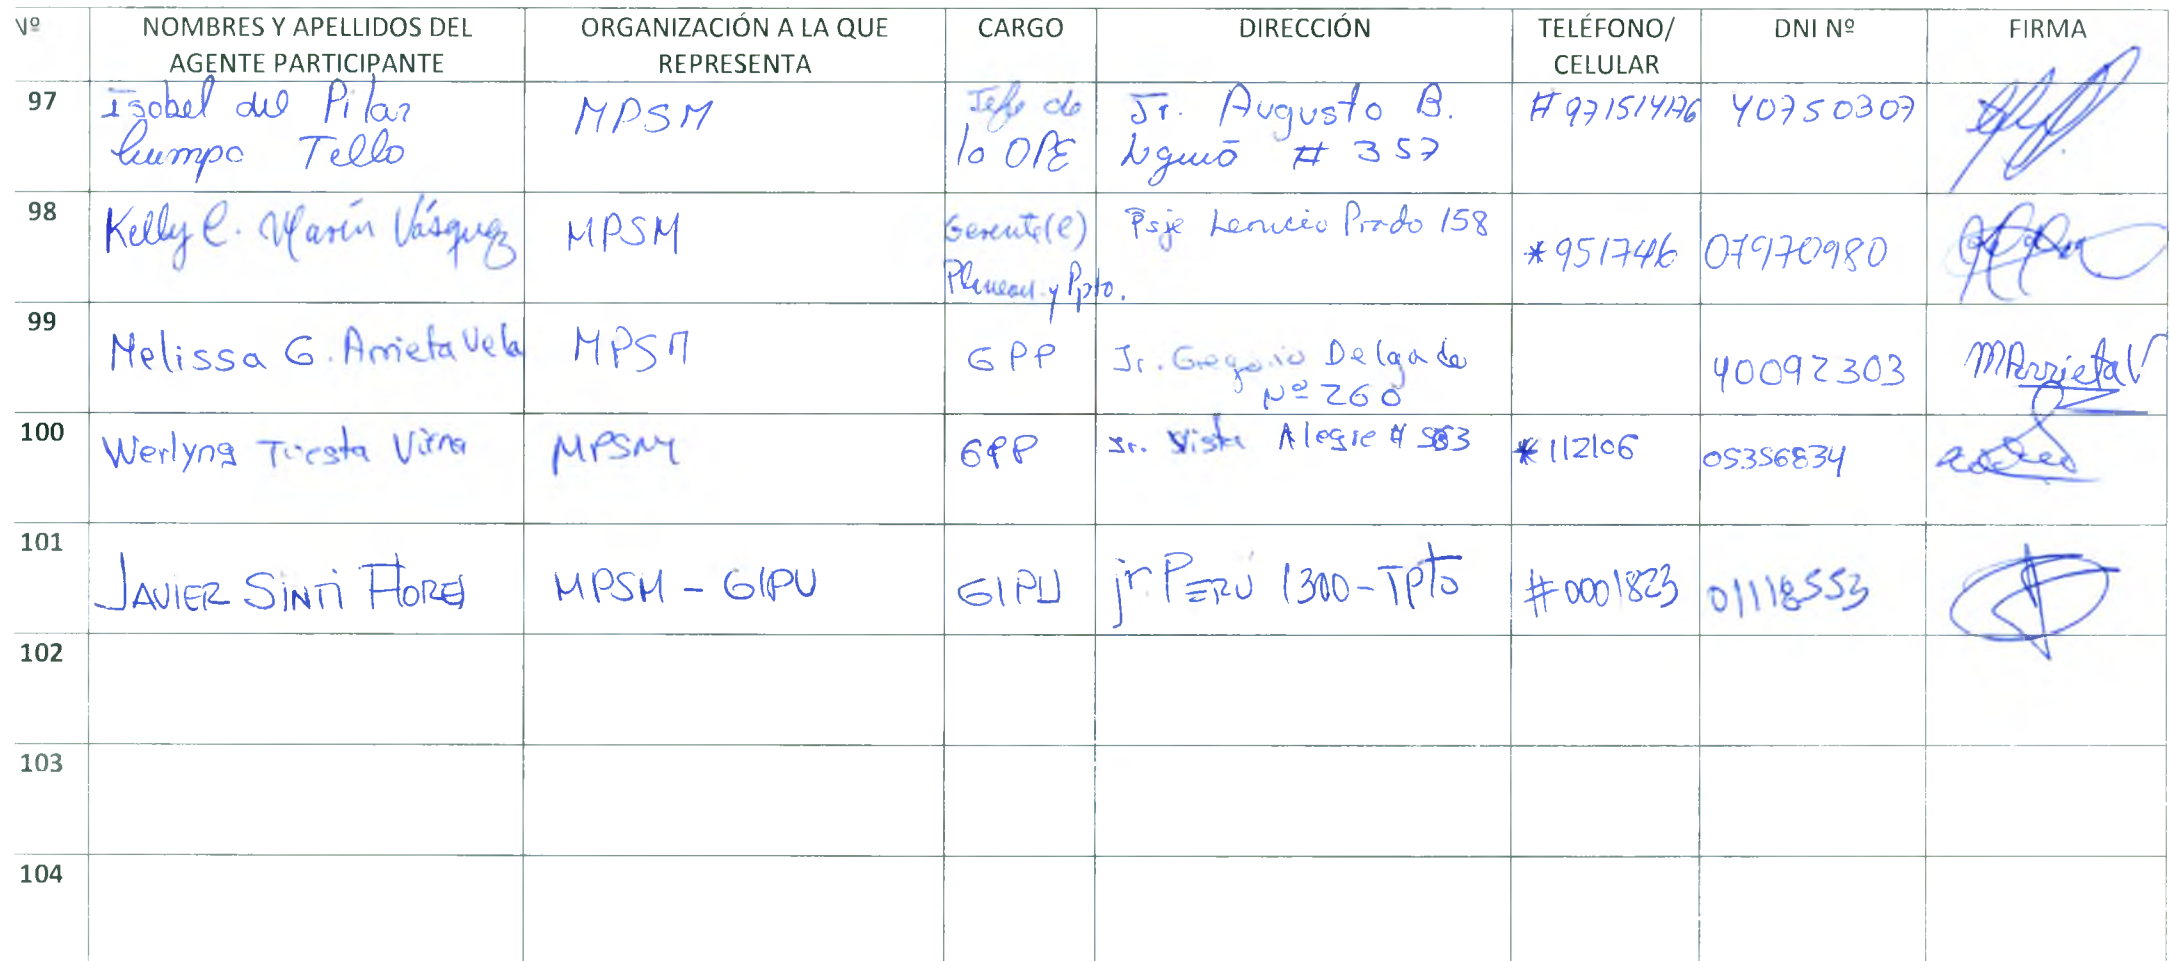 Nº NOMBRES Y APELLIDOS DEL AGENTE PARTICIPANTE ORGANIZACIÓN A LA QUE REPRESENTA CARGO DIRECCIÓN TELÉFONO/ CELULAR DNI Nº FIRMA
97 Isabel del Pilar Tello MPSM Jefe de la OPE Jr. Augusto B. # 357 40750307
98 Kelly C. Marín Vásquez MPSM Gerente(e) y Ppto. Psje Leoncio Prado 158 *951746 07970980
99 Melissa G. Arrieta Vela MPSM GPP Jr. Gregorio Delgado Nº 260 40092303 MArrietaV
100 Werlyng Tuesta MPSM GPP Jr. Vista Alegre # *112106 05356834
101 JAVIER SINTI FLORES MPSM - GIPU GIPU jr PERÚ 1300-TPTO #0001823 01118553
102
103
104